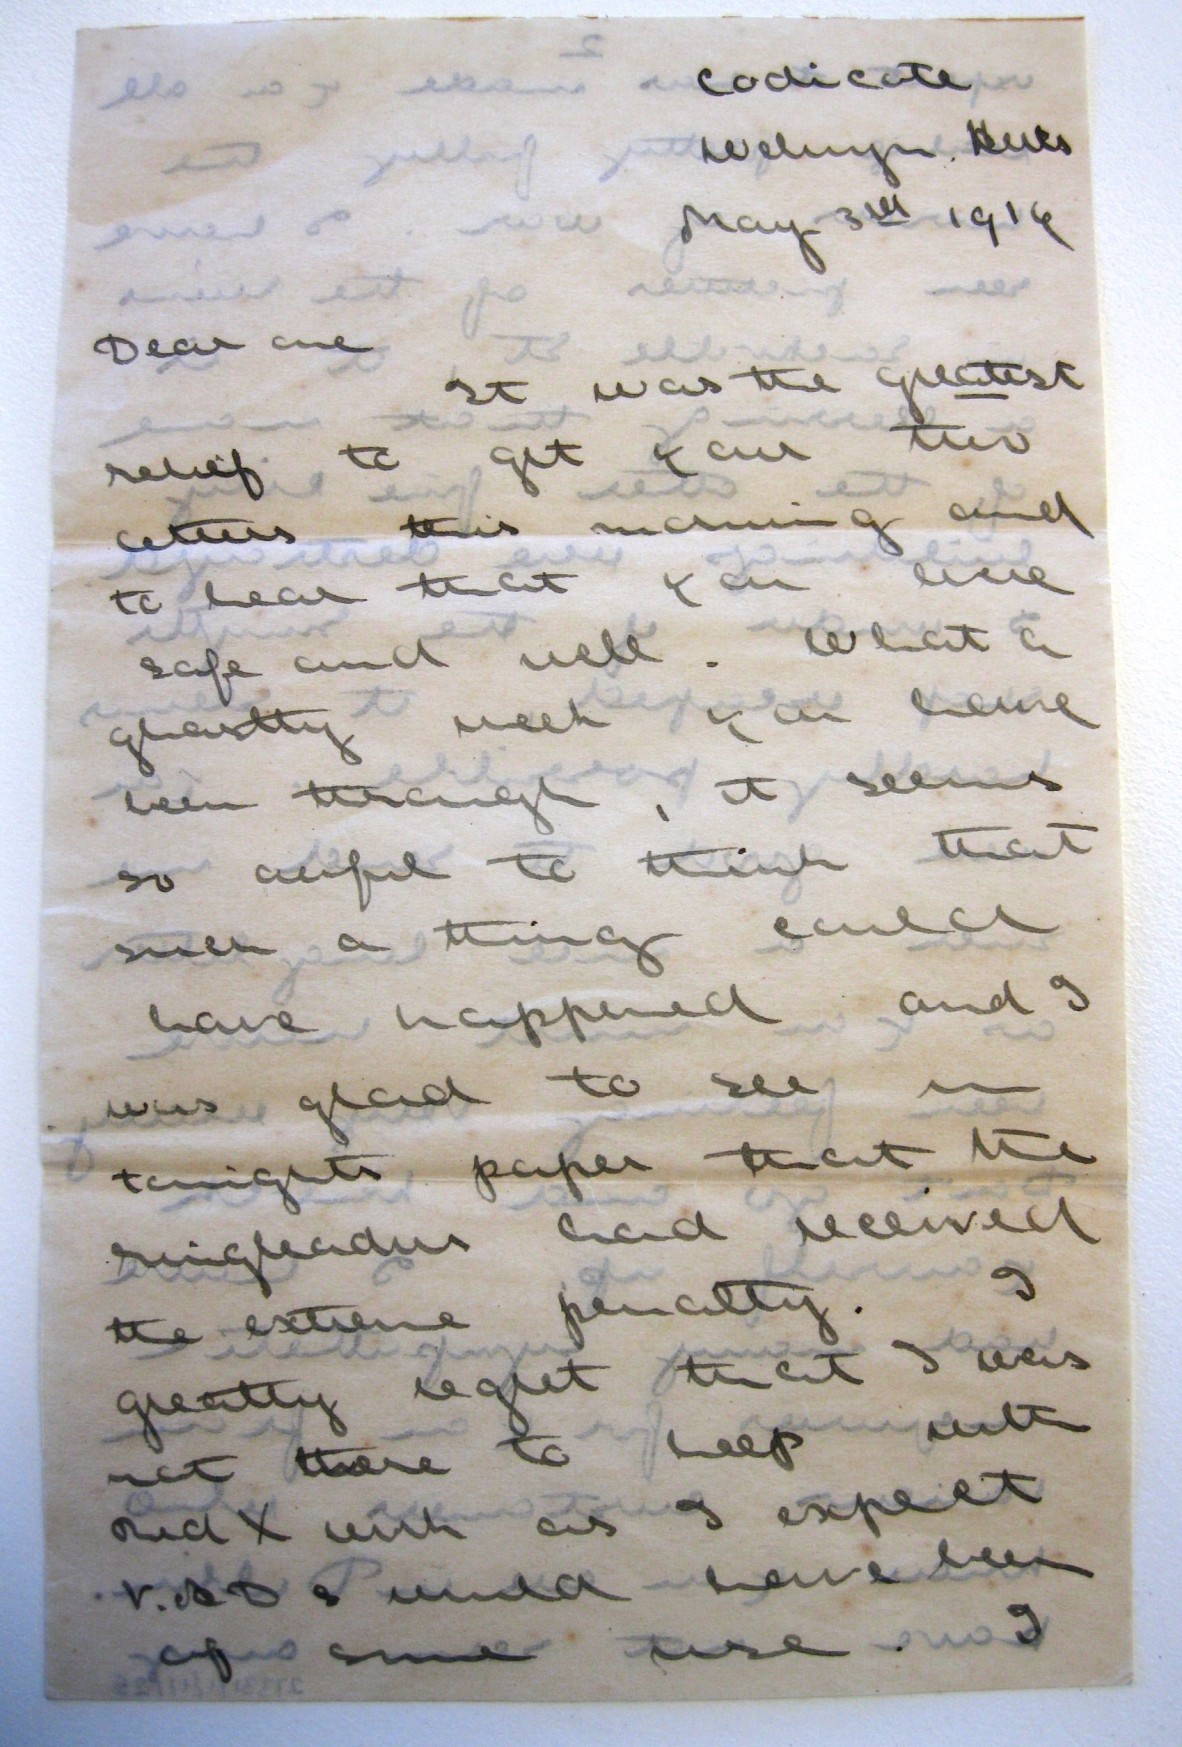 Codicote
Welwyn. Herts
May 3rd 1916
Dear one
It was the greatest
relief to get your two
letters this morning and
to hear that you were
safe and well. What a
ghastly week you have
been through, it seems
so awful to think that
such a thing could
have happened and I
was glad to see in
tonights paper that the
ringleaders had received
the extreme penalty. I
greatly regret that I was
not there to help with
red X work as I expect
V.A.D s would have been
of some use. I